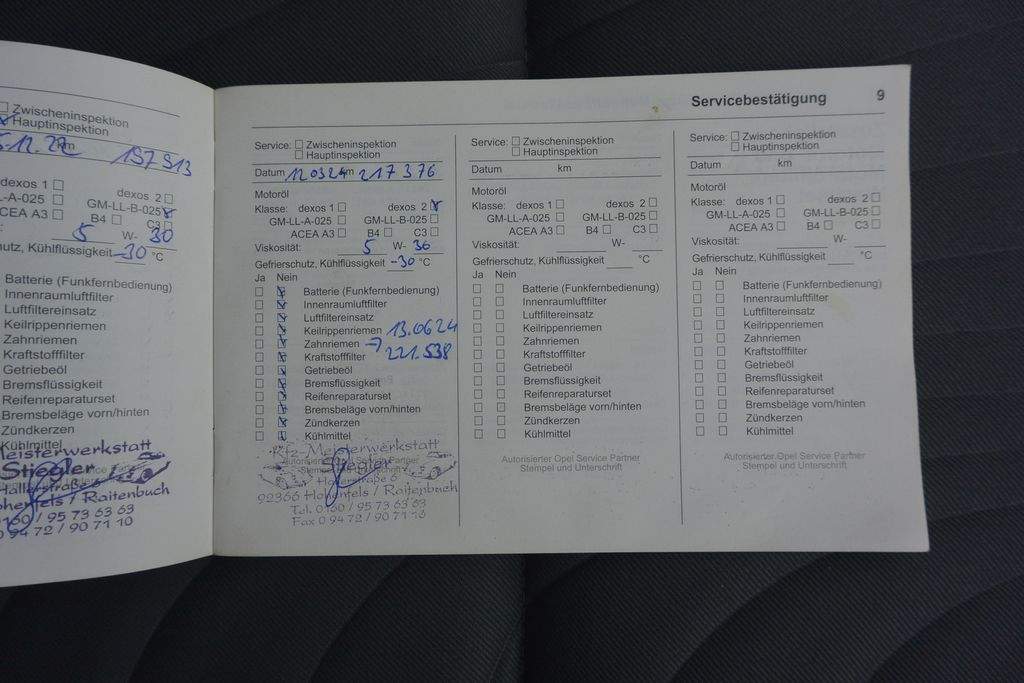 ☐ Zwischeninspektion
Hauptinspektion
12.22 km 197 913
dexos 1 ☐ dexos 2 ☐
L-A-025 ☐ GM-LL-B-025
ACEA A3 ☐ B4 ☐ C3 ☐
5 W- 30
hutz, Kühlflüssigkeit -30 °C
Batterie (Funkfernbedienung)
Innenraumluftfilter
Luftfiltereinsatz
Keilrippenriemen
Zahnriemen
Kraftstofffilter
Getriebeöl
Bremsflüssigkeit
Reifenreparaturset
Bremsbeläge vorn/hinten
Zündkerzen
Kühlmittel
Meisterwerkstatt
Stiegler
Hallerstraße 6
ohenfels / Raitenbuch
0160 / 95 73 63 63
0 94 72 / 90 71 10
Servicebestätigung 9
Service: ☐ Zwischeninspektion
☐ Hauptinspektion
Datum 12.03.24 km 217 376
Motoröl
Klasse: dexos 1 ☐ dexos 2
GM-LL-A-025 ☐ GM-LL-B-025 ☐
ACEA A3 ☐ B4 ☐ C3 ☐
Viskosität: 5 W- 30
Gefrierschutz, Kühlflüssigkeit -30 °C
Ja Nein
Batterie (Funkfernbedienung)
Innenraumluftfilter
Luftfiltereinsatz
Keilrippenriemen 13.06.24
Zahnriemen → 221.538
Kraftstofffilter
Getriebeöl
Bremsflüssigkeit
Reifenreparaturset
Bremsbeläge vorn/hinten
Zündkerzen
Kühlmittel
Kfz-Meisterwerkstatt
Autorisierter Opel Service Partner
Stempel und Unterschrift
Stiegler
Hallerstraße 6
92366 Hohenfels / Raitenbuch
Tel. 0160 / 95 73 63 63
Fax 0 94 72 / 90 71 10
Service: ☐ Zwischeninspektion
☐ Hauptinspektion
Datum km
Motoröl
Klasse: dexos 1 ☐ dexos 2 ☐
GM-LL-A-025 ☐ GM-LL-B-025 ☐
ACEA A3 ☐ B4 ☐ C3 ☐
Viskosität: W-
Gefrierschutz, Kühlflüssigkeit °C
Ja Nein
☐ ☐ Batterie (Funkfernbedienung)
☐ ☐ Innenraumluftfilter
☐ ☐ Luftfiltereinsatz
☐ ☐ Keilrippenriemen
☐ ☐ Zahnriemen
☐ ☐ Kraftstofffilter
☐ ☐ Getriebeöl
☐ ☐ Bremsflüssigkeit
☐ ☐ Reifenreparaturset
☐ ☐ Bremsbeläge vorn/hinten
☐ ☐ Zündkerzen
☐ ☐ Kühlmittel
Autorisierter Opel Service Partner
Stempel und Unterschrift
Service: ☐ Zwischeninspektion
☐ Hauptinspektion
Datum km
Motoröl
Klasse: dexos 1 ☐ dexos 2 ☐
GM-LL-A-025 ☐ GM-LL-B-025 ☐
ACEA A3 ☐ B4 ☐ C3 ☐
Viskosität: W-
Gefrierschutz, Kühlflüssigkeit °C
Ja Nein
☐ ☐ Batterie (Funkfernbedienung)
☐ ☐ Innenraumluftfilter
☐ ☐ Luftfiltereinsatz
☐ ☐ Keilrippenriemen
☐ ☐ Zahnriemen
☐ ☐ Kraftstofffilter
☐ ☐ Getriebeöl
☐ ☐ Bremsflüssigkeit
☐ ☐ Reifenreparaturset
☐ ☐ Bremsbeläge vorn/hinten
☐ ☐ Zündkerzen
☐ ☐ Kühlmittel
Autorisierter Opel Service Partner
Stempel und Unterschrift